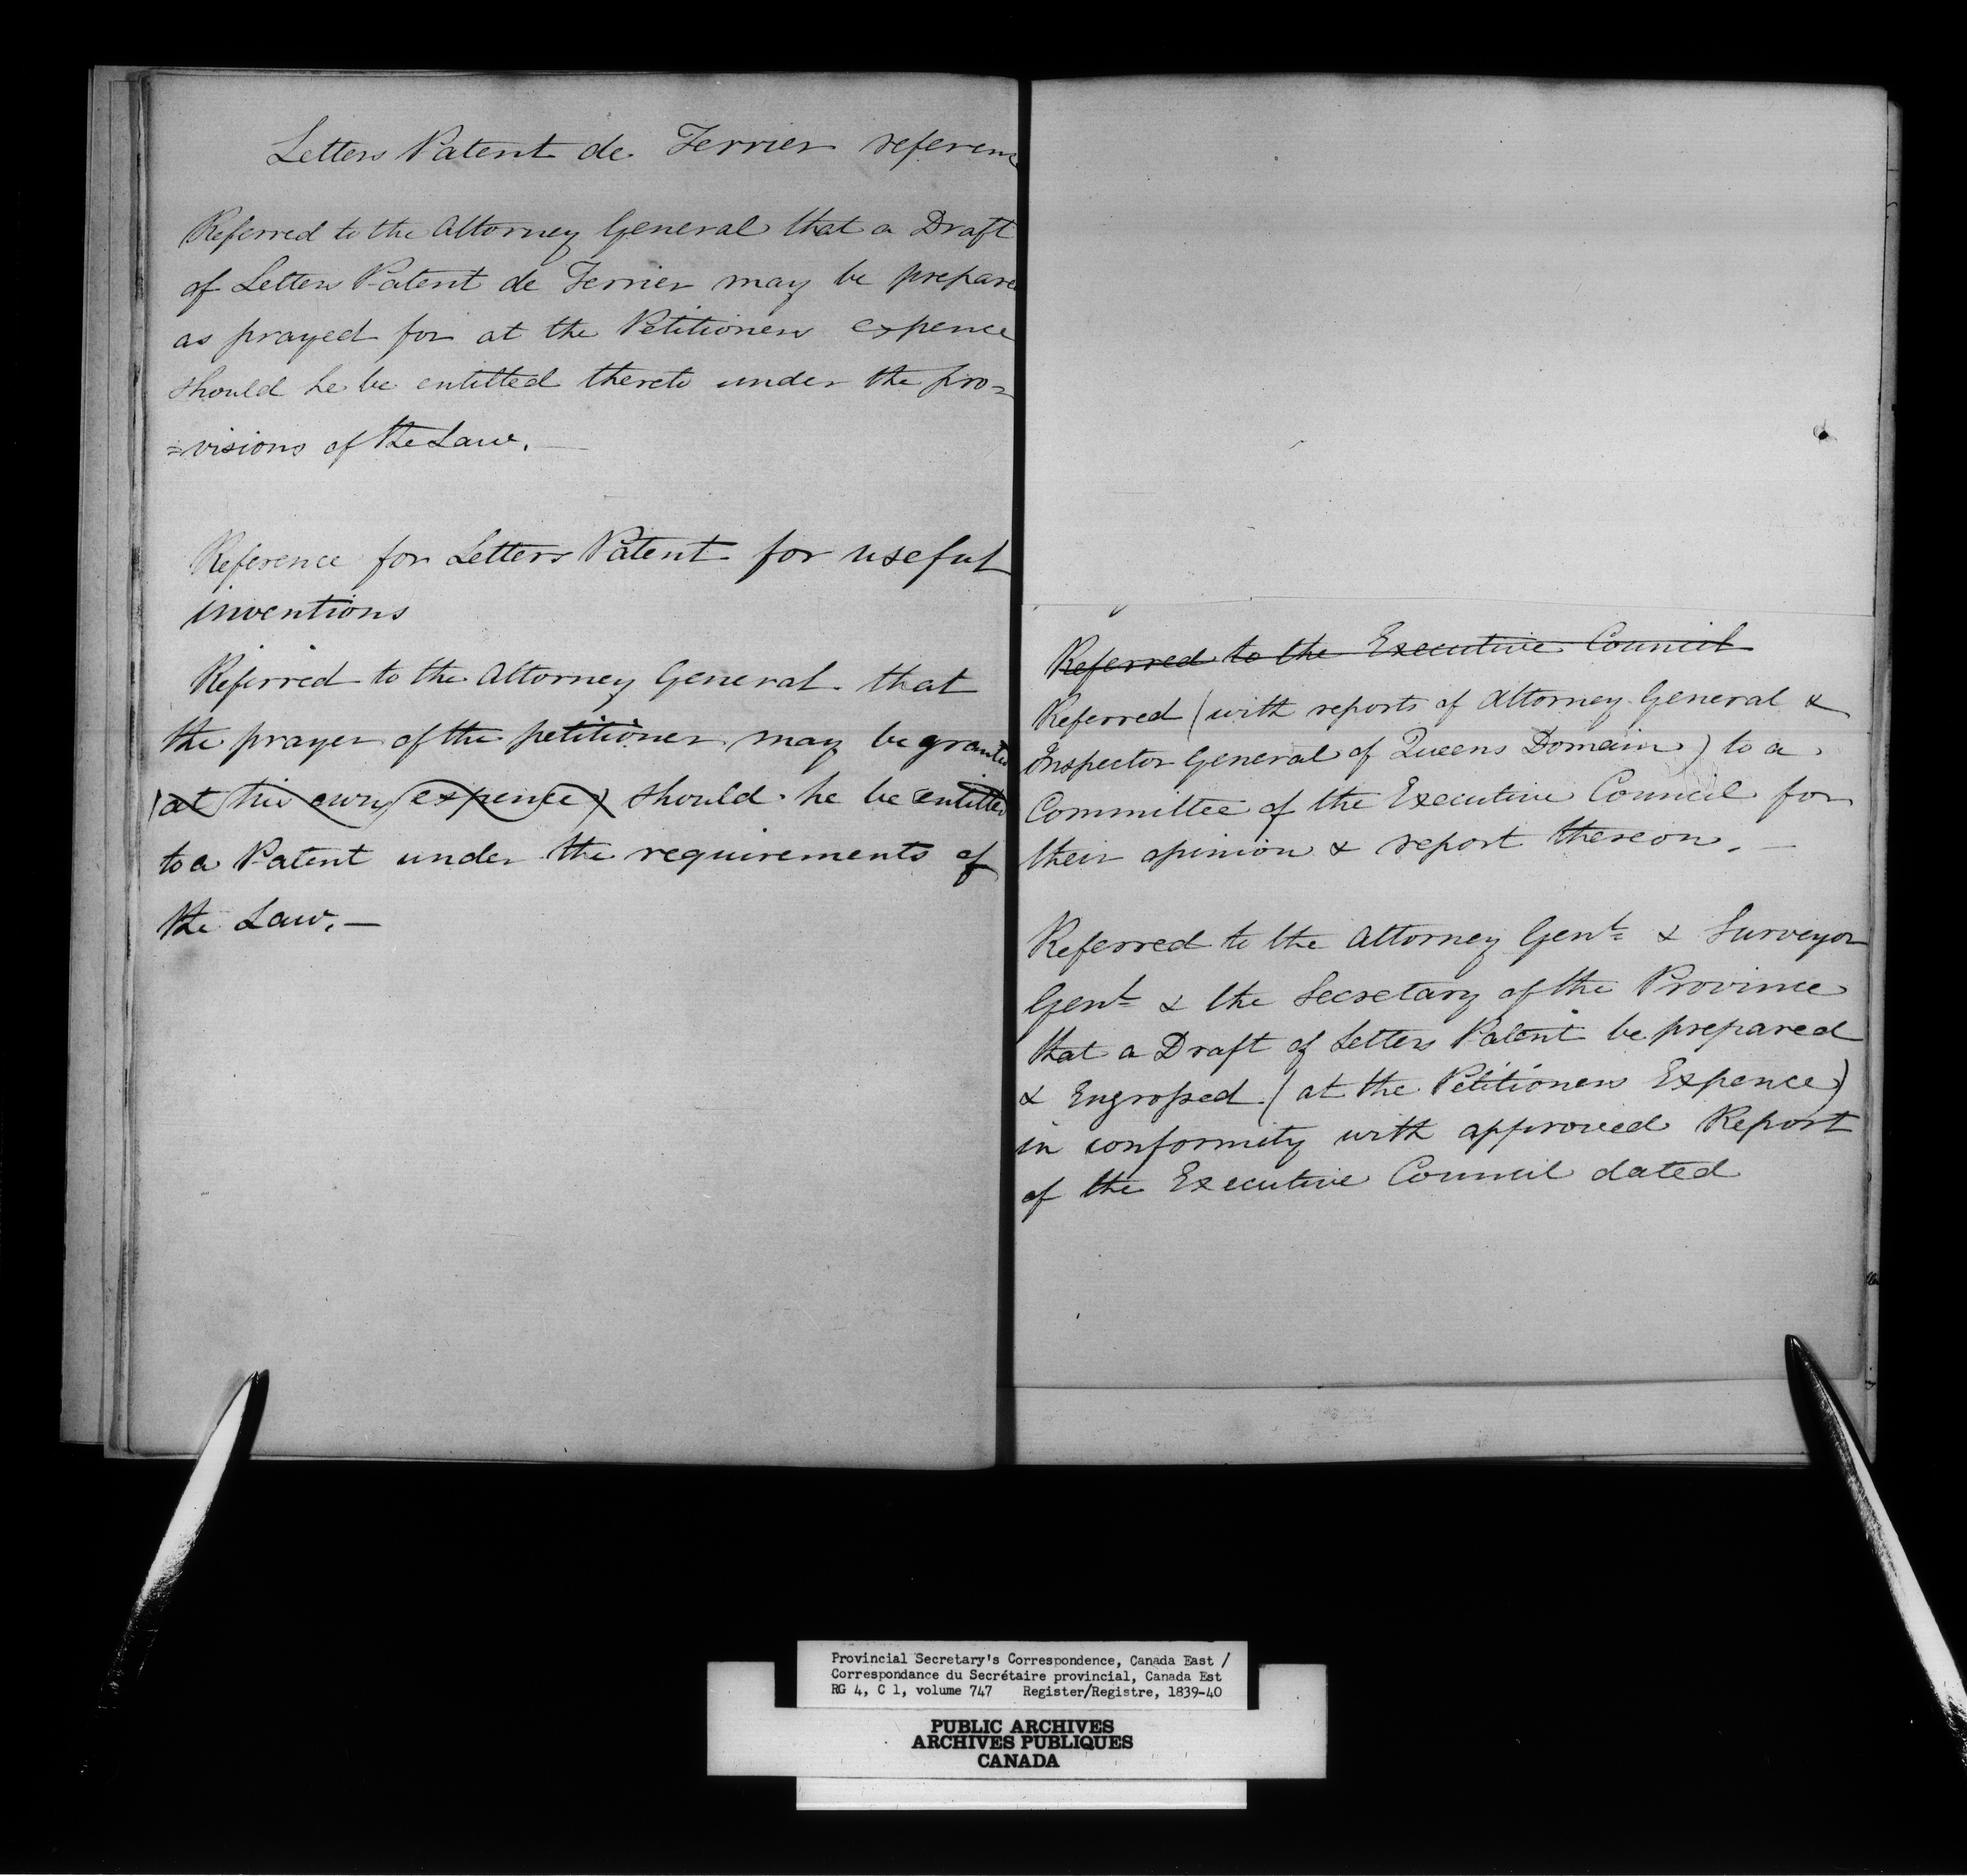 Letters Patent de Terrier referenc
Referred to the Attorney General that a Draft
of Letters Patent de Terrier may be prepare
as prayed for at the Petitioners expence
should he be entitled thereto under the pro=
=visions of the Law. —
Reference for Letters Patent for useful
inventions
Referred to the Attorney General that
the prayer of the petitioner may be granted
(at his own expence) should he be entitled
to a Patent under the requirements of
the Law. —
Referred to the Executive Council
Referred (with reports of Attorney General &
Inspector General of Queens Domain) to a
Committee of the Executive Council for
their opinion & report thereon. —
Referred to the Attorney Genl & Surveyor
Genl & the Secretary of the Province
that a Draft of Letters Patent be prepared
& Engrossed (at the Petitioners Expence)
in conformity with approved Report
of the Executive Council dated
Provincial Secretary's Correspondence, Canada East /
Correspondance du Secrétaire provincial, Canada Est
RG 4, C 1, volume 747 Register/Registre, 1839-40
PUBLIC ARCHIVES
ARCHIVES PUBLIQUES
CANADA